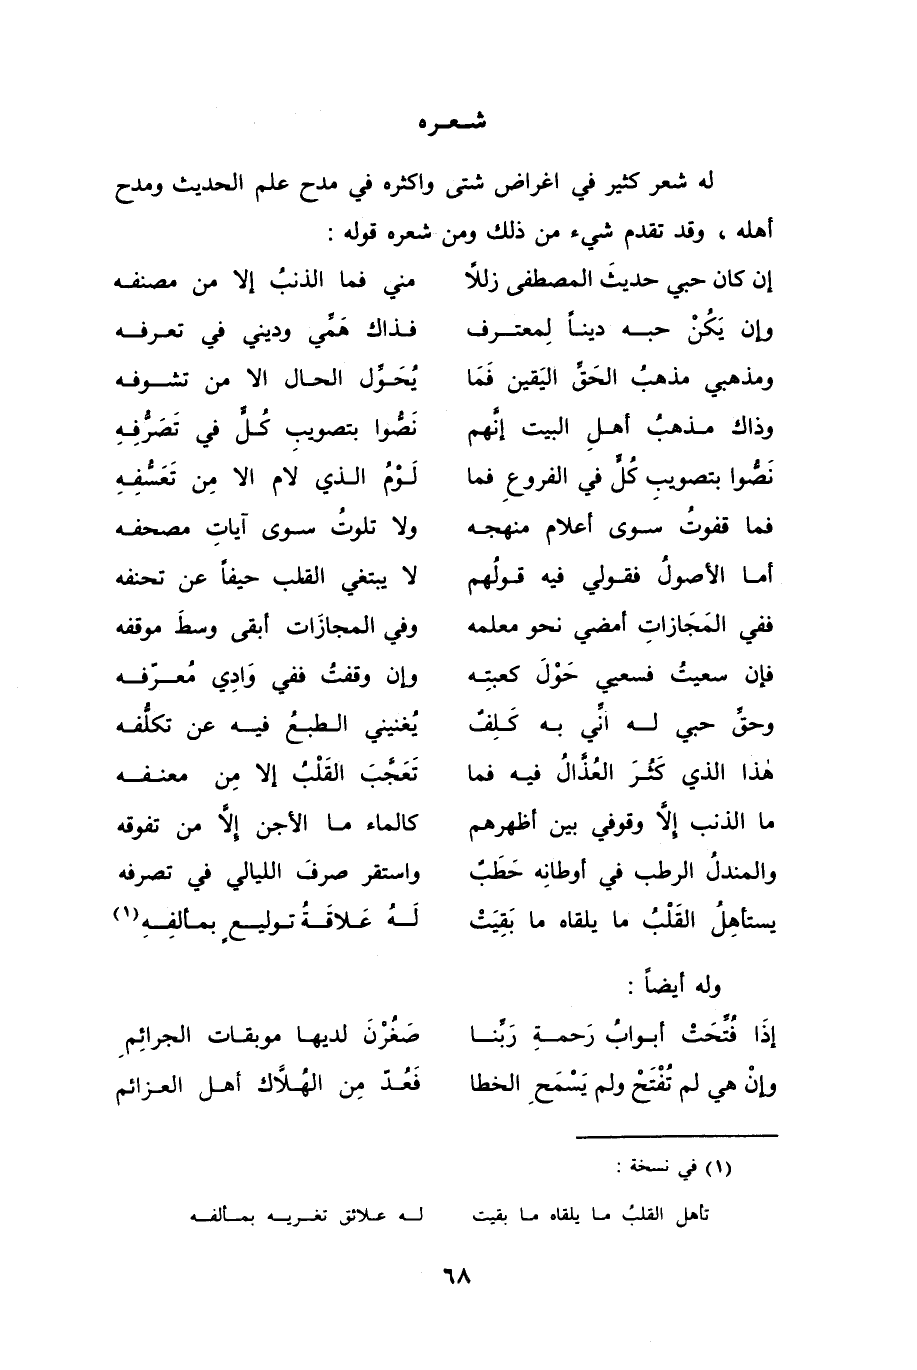 شـعـره
له شعر كثير في اغراض شتى واكثره في مدح علم الحديث ومدح
أهله ، وقد تقدم شيء من ذلك ومن شعره قوله :
إن كان حبي حديثَ المصطفى زللاً مني فما الذنبُ إلا من مصنفه
وإن يَكُنْ حبـه دينـاً لِمعتـرف فـذاك هَمِّي وديني في تعرفـه
ومذهبي مذهبُ الحَقِّ اليَقين فَمَا يُحَـوِّل الحـال الا من تشـوفه
وذاك مـذهبُ أهـلِ البيت إنَّهم نَصُّوا بتصويبِ كُـلٍّ في تَصَرُّفِـهِ
نَصُّوا بتصويبِ كُلٍّ في الفروع فما لَـوْمُ الـذي لام الا مِن تَعَسُّفِـهِ
فما قفوتُ سـوى أعلام منهجـه ولا تلوتُ سـوى آياتِ مصحفـه
أمـا الأصولُ فقـولي فيه قـولُهم لا يبتغي القلب حيفاً عن تحنفه
ففي المَجَازاتِ أمضي نحو معلمه وفي المجازَات أبقى وسطَ موقفه
فإن سعيتُ فسعيي حَوْلَ كعبتِـه وإن وقفتُ ففي وَادِي مُعـرّفـه
وحقِّ حبي لـه أنِّي بـه كَـلِفٌ يُغنيني الـطبعُ فيـه عن تكلُّفـه
هٰذا الذي كَثُرَ العُذَّالُ فيـه فما تَعَجَّبَ القَلْبُ إلا مِن معنـفـه
ما الذنب إلَّا وقوفي بين أظهرهم كالماء مـا الأجن إلَّا من تفوقه
والمندلُ الرطب في أوطانِه حَطَبٌ واستقر صرفَ الليالي في تصرفه
يستأهِلُ القَلْبُ ما يلقاه ما بَقِيَتْ لَـهُ عَـلاقَـةُ تـوليـعٍ بمـألفِـهِ(١)
وله أيضاً :
إذَا فُتِّحَتْ أبـوابُ رَحمـةِ رَبِّنـا صَغُرْنَ لديهـا موبقـات الجرائِمِ
وإنْ هي لم تُفْتَحْ ولم يَسْمَحِ الخطا فَعُـدّ مِن الهُلَّاك أهـل العـزائم
(١) في نسخة :
تأهل القلبُ مـا يلقاه مـا بقيت لـه عـلائق تغـريـه بمـألفـه
٦٨